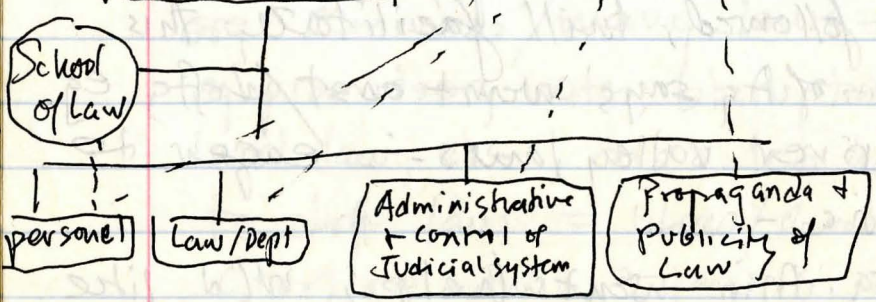 School
of Law
personel
Law/Dept
Administrative
+ Control of
Judicial system
Propaganda +
Publicity of
Law